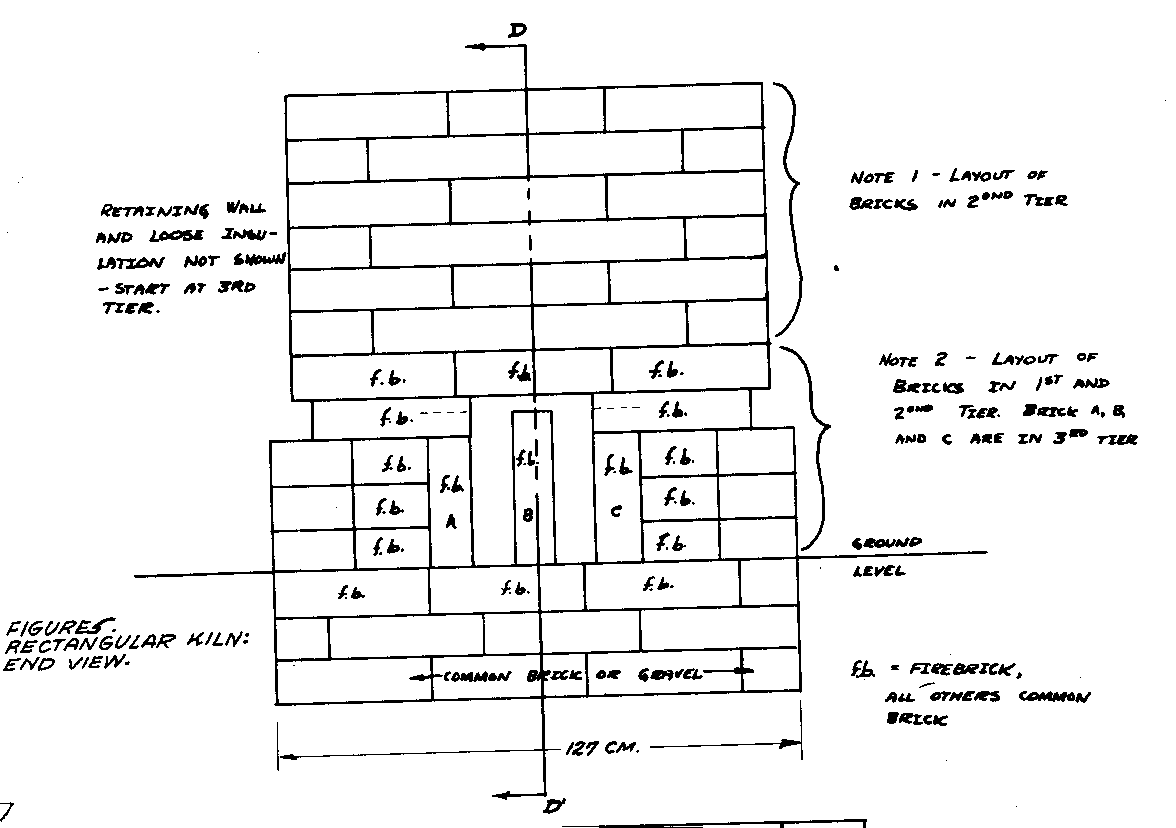 D
NOTE 1 - LAYOUT OF
BRICKS IN 2OND TIER
RETAINING WALL
AND LOOSE INSU-
LATION NOT SHOWN
- START AT 3RD
TIER.
f.b. f.b. f.b.
f.b. f.b.
NOTE 2 - LAYOUT OF
BRICKS IN 1ST AND
2OND TIER. BRICK A, B,
AND C ARE IN 3RD TIER
f.b. f.b. f.b. f.b. f.b.
f.b. f.b.
A B C
f.b. f.b.
GROUND
LEVEL
f.b. f.b. f.b.
FIGURE 5.
RECTANGULAR KILN:
END VIEW.
COMMON BRICK OR GRAVEL
f.b. = FIREBRICK,
ALL OTHERS COMMON
BRICK
127 CM.
D'